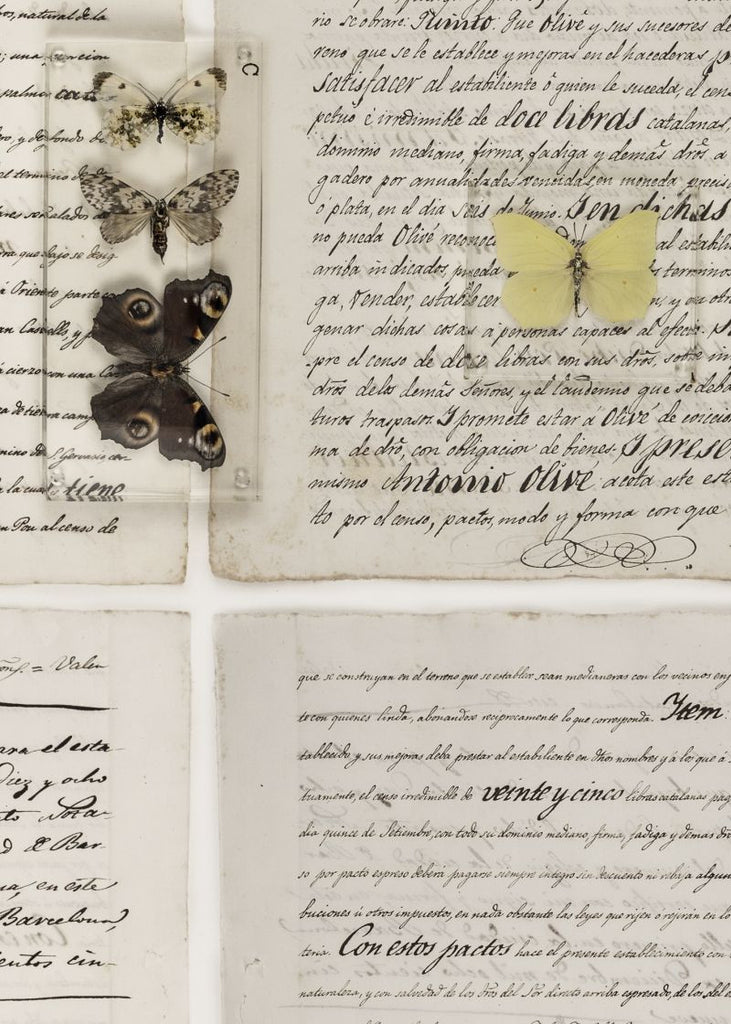 , natural de la
; una porcion
palmos cato
ro, y de fondo de
es termino de
ares señalado de
rra que bajo se desig
á Oriente parte co
an Castells, y p
á cierzo con una Ca
a de tierra camp
mino de S. Gervasio con
a la cual tiene
n Pou al censo de
C
rio se obrare: Quinto: Que Olivé y sus sucesores de
reno que se le establece y mejoras en el hacederas p
satisfacer al estabiliente ó quien le suceda, el cens
petuo é irredimible de doce libras catalanas,
dominio mediano, firma, fadiga y demás dros. a
gadero por anualidades vencidas, en moneda precis
ó plata, en el dia Seis de Junio. Y en dichas
no pueda Olivé reconoc al establi
arriba indicados, pueda s terminos
ga, vender, establecer y en otr
genar dichas cosas á personas capaces al efecto.
pre el censo de doce libras con sus dros, sobre in
dros de los demás Señores, y el laudemio que se deba
turos traspasos. Y promete estar á Olivé de eviccion
ma de dro, con obligacion de bienes. Y prese
mismo Antonio Olivé acota este est
to por el censo, pactos, modo y forma con que
= Valen
ara el esta-
Diez y ocho
to Nota-
d de Bar-
na, en este
Barcelona,
entos cin-
que se construyan en el terreno que se establece sean medianeras con los vecinos en
te con quienes linda, abonandose reciprocamente lo que corresponda. Item
tablecido y sus mejoras deba prestar al estabiliente en dhos nombres y á los que á
tuamente, el censo irredimible de veinte y cinco libras catalanas pag
dia quince de Setiembre, con todo su dominio mediano, firma, fadiga y demas dro
so por pacto espreso deberá pagarse siempre integro sin descuento ni rebaja algun
buciones ú otros impuestos, en nada obstante las leyes que rijen o rejirán en lo
teria. Con estos pactos hace el presente establecimiento con
naturaleza, y con salvedad de los dros del Sor directo arriba espresado, de los del e